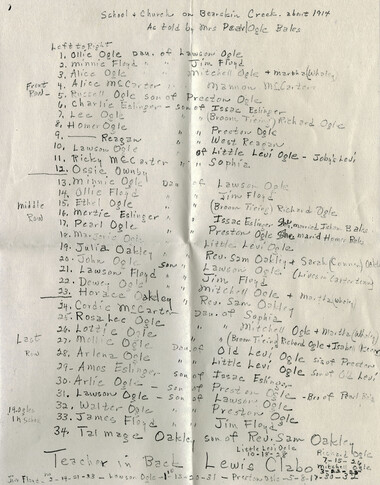 School & Church on Bearskin Creek. about 1914
As told by Mrs Pearl Ogle Bales
Left to Right
1. Ollie Ogle Dau. of Lawson Ogle
2. Minnie Floyd " " Jim Floyd
3. Alice Ogle " " Mitchell Ogle + Martha (Whaley)
Front Row -
4. Alice McCarter " Mamon McCarter
5. Russell Ogle son of Preston Ogle
6. Charlie Eslinger - son of Isaac Eslinger
7. Lee Ogle " " (Broom Tieing) Richard Ogle
8. Homer Ogle " "
9. Reagan " Preston Ogle
10. Lawson Ogle " West Reagan
11. Ricky McCarter " of Little Levi Ogle - Joby's Levi
12. Ossie Ownby " Sophia
13. Minnie Ogle Dau of Lawson Ogle
14. Ollie Floyd " " Jim Floyd
Middle Row
15. Ethel Ogle " (Broom Tieing) Richard Ogle
16. Mertie Eslinger " Isaac Eslinger married John Bales
17. Pearl Ogle " Preston Ogle married Homer Bales
18. Ogle " Little Levi Ogle
19. Julia Oakley " Rev. Sam Oakley + Sarah (Conner)
20. John Ogle son " Lawson Ogle
21. Lawson Floyd " Jim Floyd
22. Dewey Ogle " Mitchell Ogle + Martha (Whaley)
23. Horace Oakley " Rev. Sam Oakley
24. Cordie McCarter Dau. of Sophia
25. Rosa Lee Ogle
26. Lottie Ogle " " Mitchell Ogle + Martha (Whaley)
Last Row
27. Mollie Ogle " (Broom Tieing) Richard Ogle +
28. Arlena Ogle Dau. of Old Levi Ogle sis of Preston
29. Amos Eslinger son of Isaac Eslinger
30. Arlie Ogle - son of Preston Ogle
31. Lawson Ogle - son of
32. Walter Ogle " Lawson Ogle
33. James Floyd " Jim Floyd
34. Talmage Oakley, son of Rev. Sam Oakley
Teacher in Back Lewis Clabo
Little Levi Ogle
10-18-28
Richard Ogle
7-15-26
Mitchell Ogle